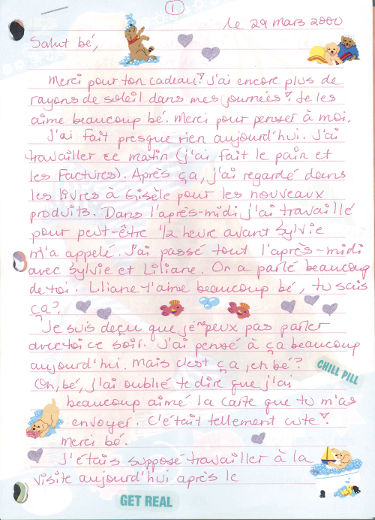 1
le 29 mars 2000
Salut bé,
Merci pour ton cadeau! J'ai encore plus de
rayons de soleil dans mes journées! Je les
aime beaucoup bé. Merci pour penser à moi.
J'ai fait presque rien aujourd'hui. J'ai
travailler ce matin (j'ai fait le pain et
les factures). Après ça, j'ai regardé dans
les livres à Gisèle pour les nouveaux
produits. Dans l'après-midi j'ai travaillé
pour peut-être 1/2 heure avant Sylvie
m'a appelé. J'ai passé tout l'après-midi
avec Sylvie et Liliane. On a parlé beaucoup
de toi. Liliane t'aime beaucoup bé, tu sais
ça?
Je suis déçu que je peux pas parler
avec toi ce soir. J'ai pensé à ça beaucoup
aujourd'hui. Mais c'est ça, eh bé?
CHILL PILL
Oh, bé, j'ai oublié te dire que j'ai
beaucoup aimé la carte que tu m'as
envoyer. C'était tellement cute!
Merci bé.
J'étais supposé travailler à la
visite aujourd'hui après le
GET REAL